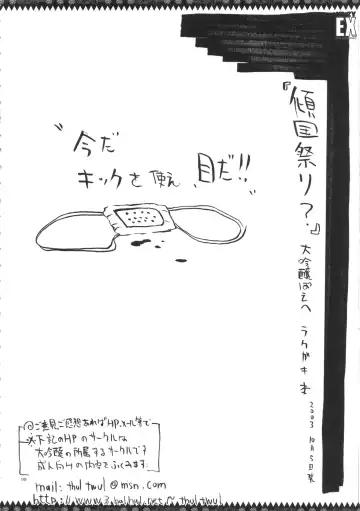 EX
『傾国祭り?』
大吟醸ばえへ ラクガキ本
2003 10月5日発
"今だ
キックを使え、目だ!!"
@ご意見ご感想あればHP、メール等で
※下記のHPのサークルは
大吟醸の所属するサークルです
成人向けの内容をふくみます。
mail: thul twul @msn.com